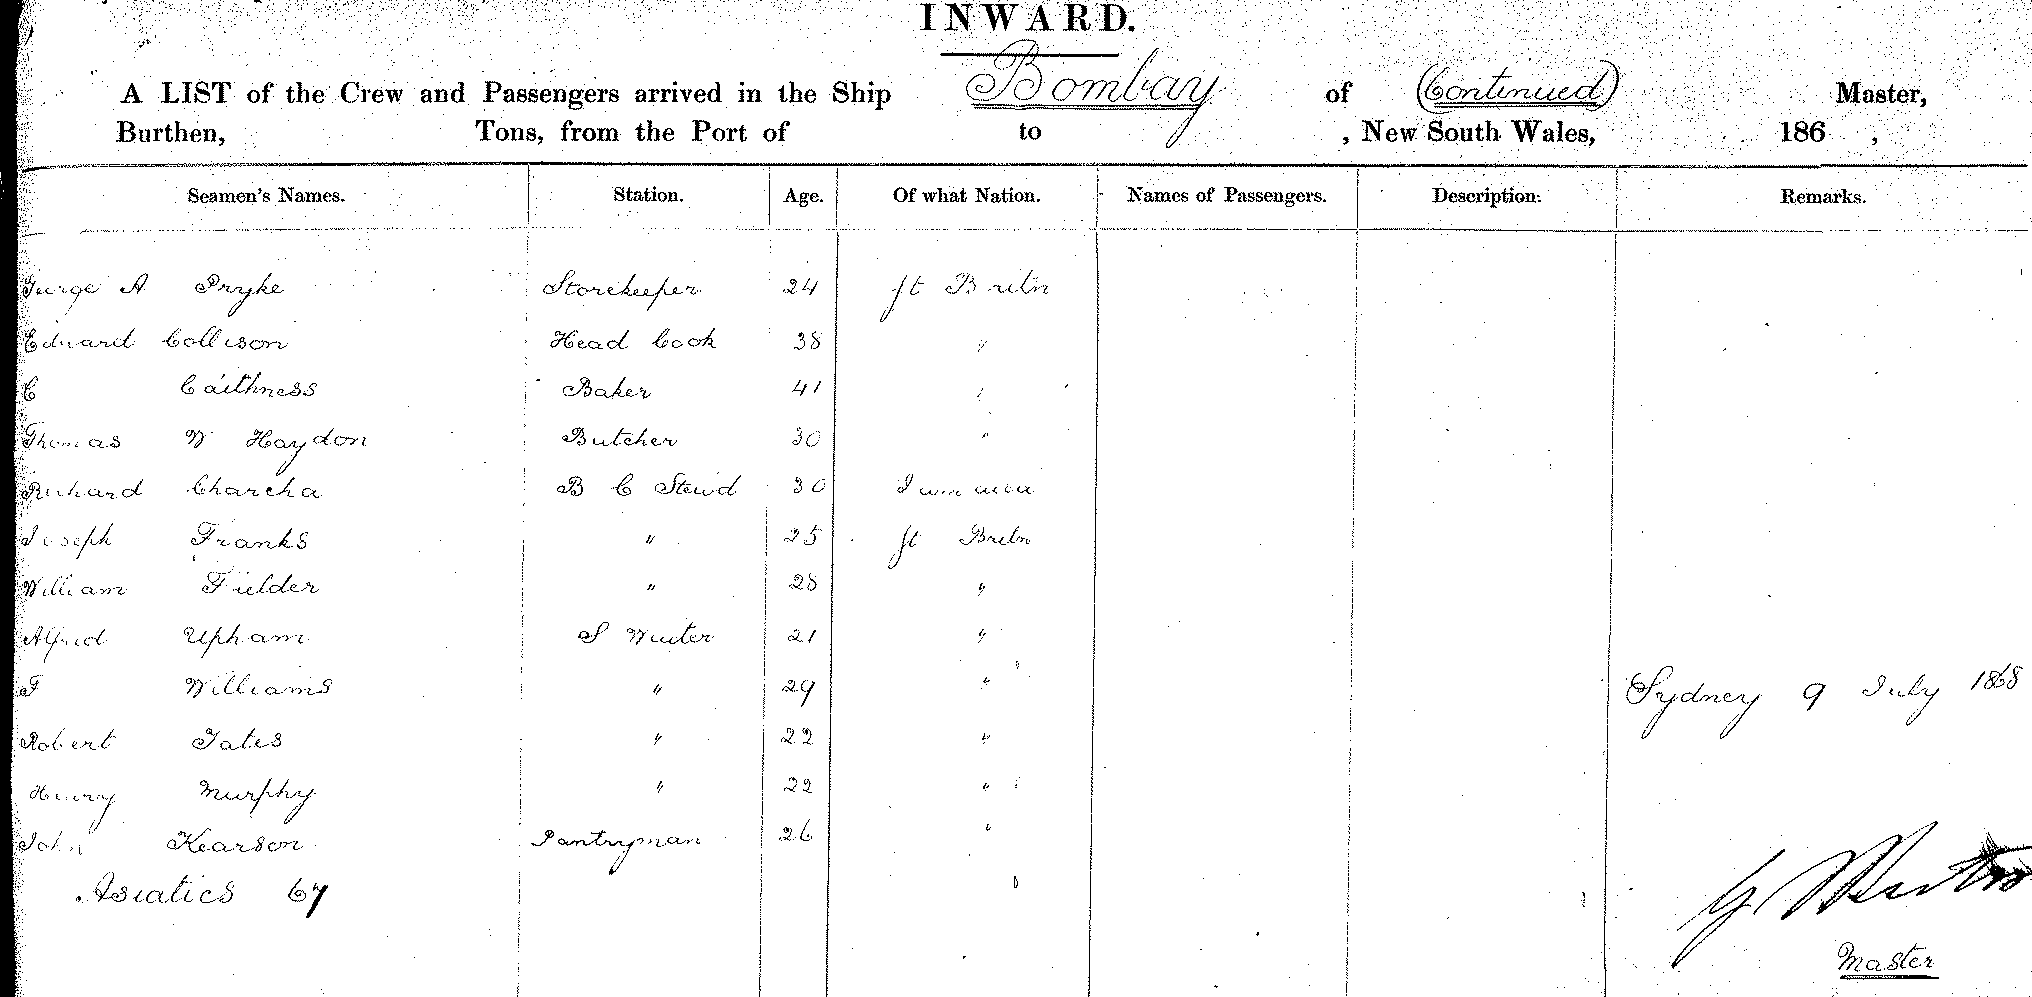 INWARD.
A LIST of the Crew and Passengers arrived in the Ship Bombay of (Continued) Master,
Burthen, Tons, from the Port of to , New South Wales, 186 ,
Seamen's Names. Station. Age. Of what Nation. Names of Passengers. Description. Remarks.
George A Pryke Storekeeper 24 Gt Britn
Edward Collison Head Cook 38 "
C Caithness Baker 41 "
Thomas W Haydon Butcher 30 "
Richard Charcha B C Stewd 30
Joseph Franks " 25 Gt Britn
William Fielder " 28 "
Alfred Upham S Waiter 21 "
F Williams " 29 " Sydney 9 July 1868
Robert " 22 "
Henry Murphy " 22 "
John Kearson Pantryman 26 "
Asiatics 67
Master